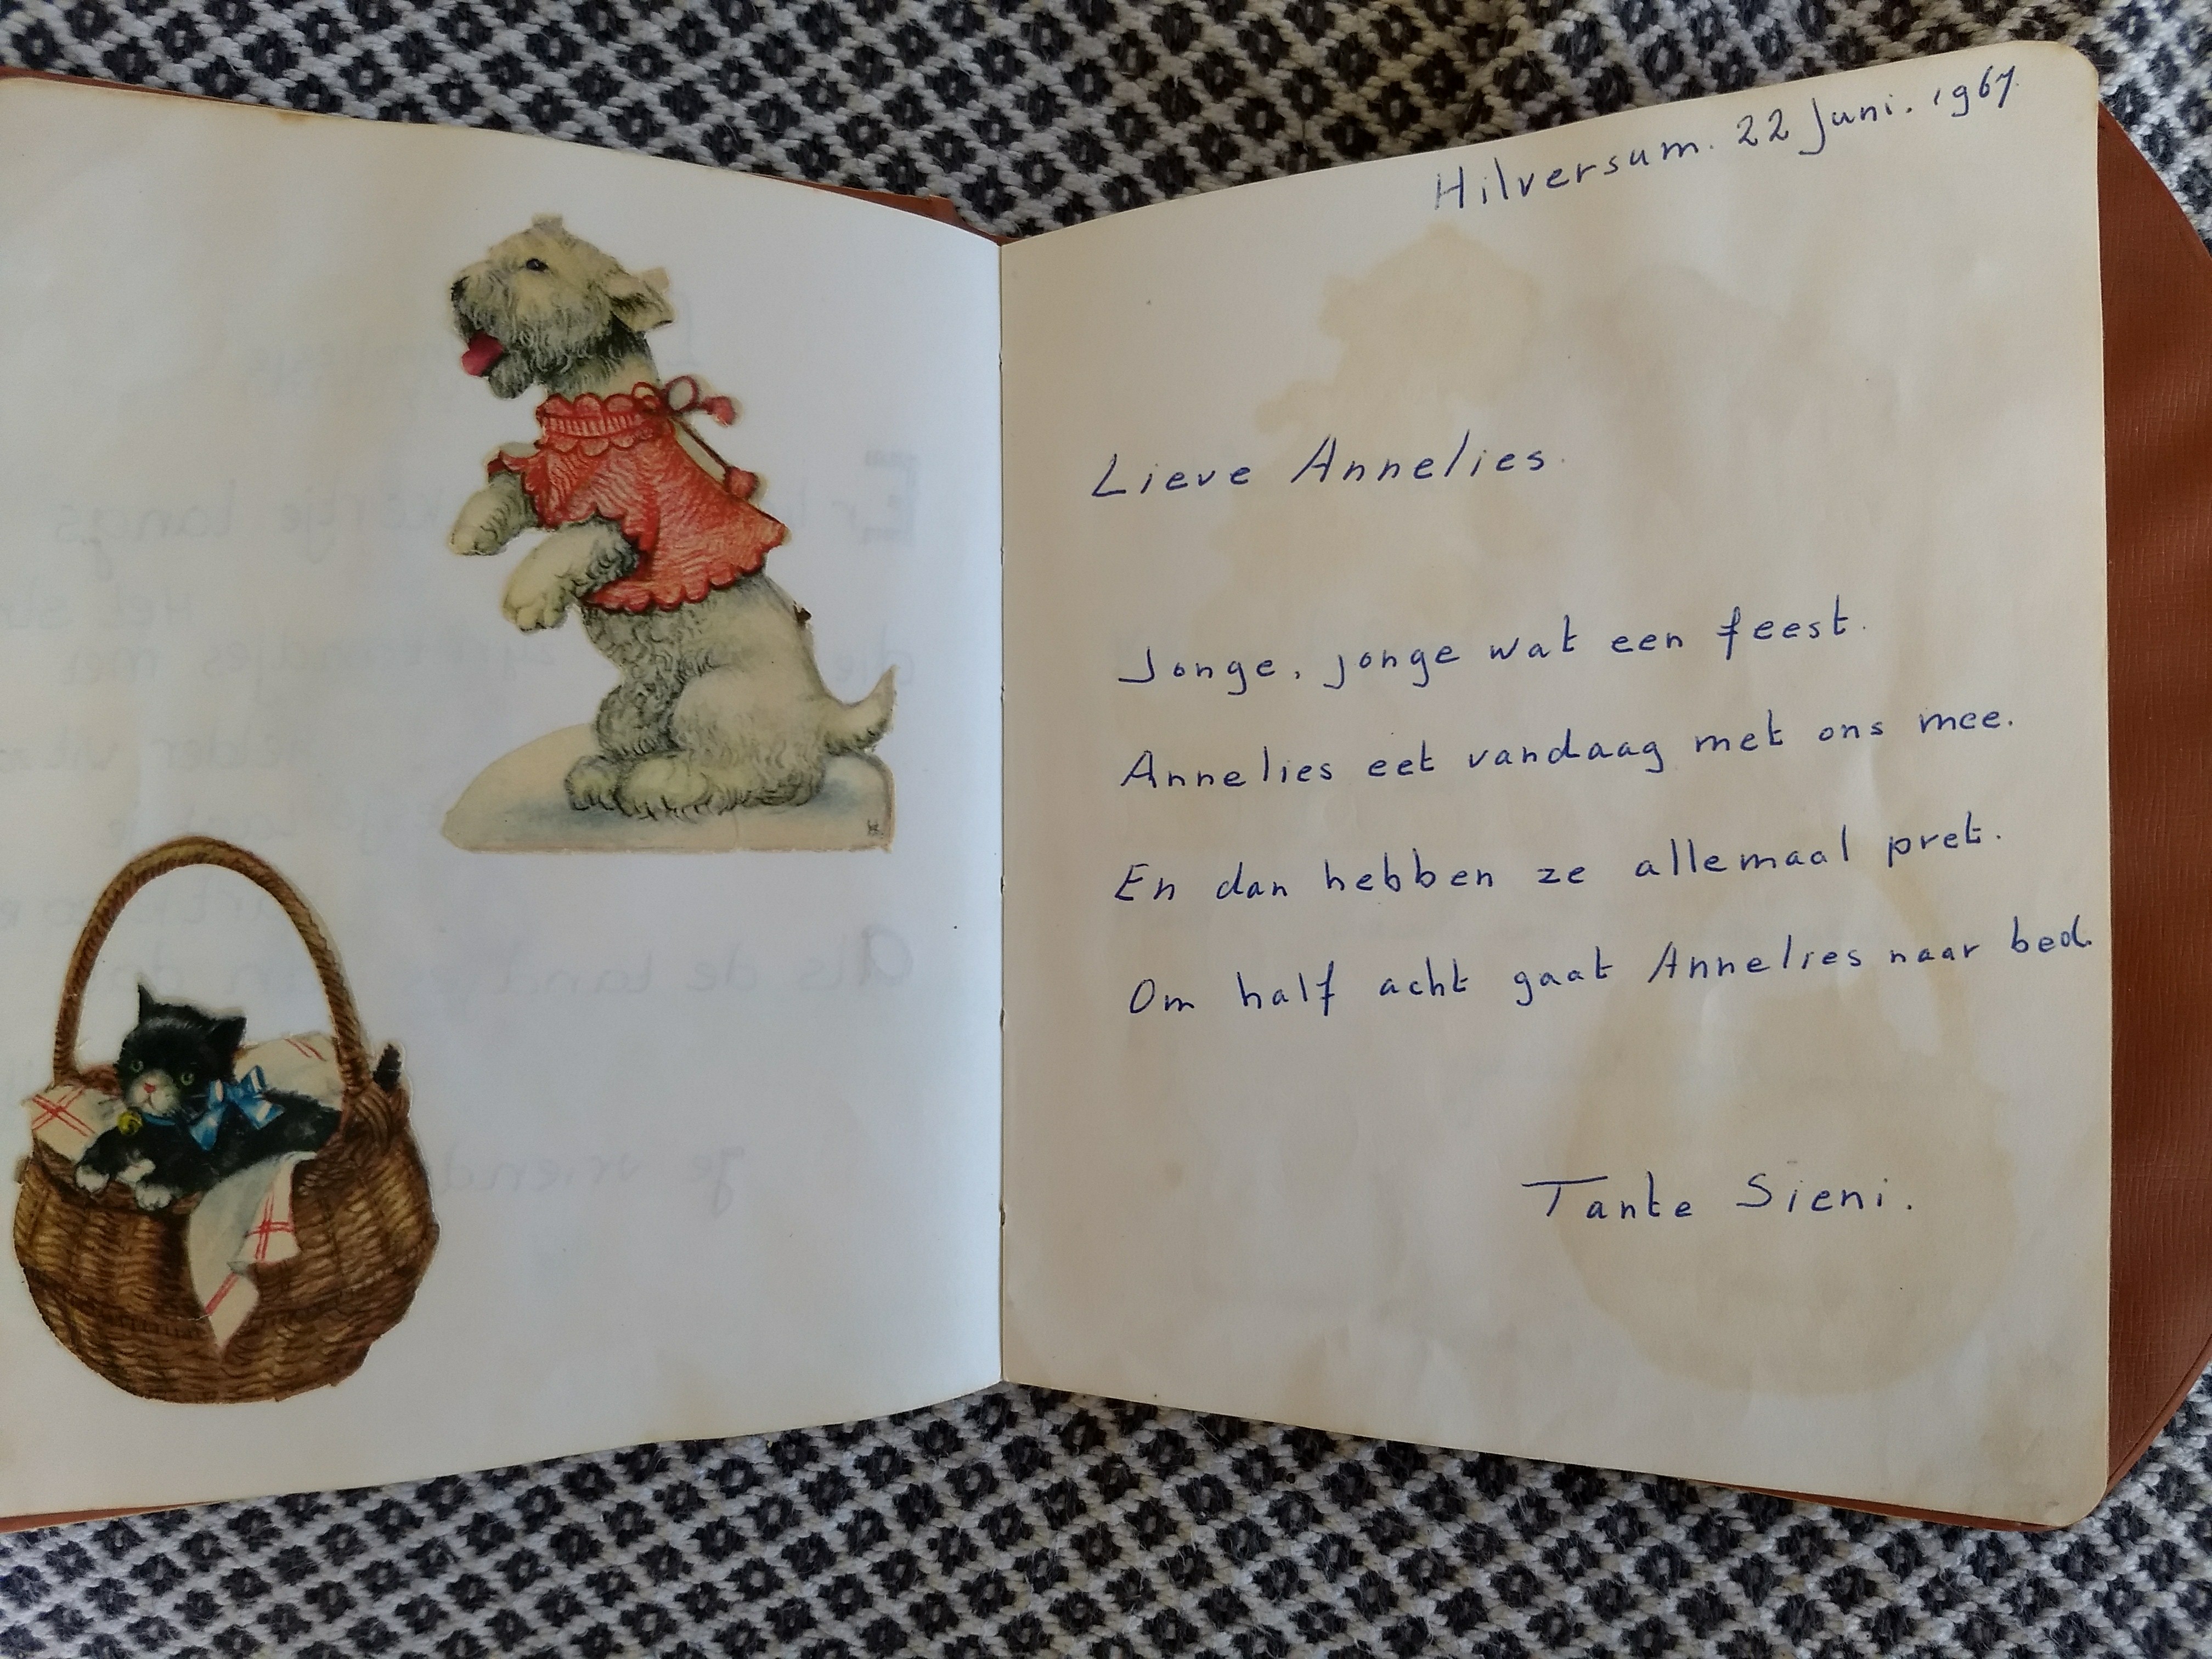 Hilversum. 22 Juni. 1967.
Lieve Annelies.
Jonge, jonge wat een feest.
Annelies eet vandaag met ons mee.
En dan hebben ze allemaal pret.
Om half acht gaat Annelies naar bed.
Tante Sieni.